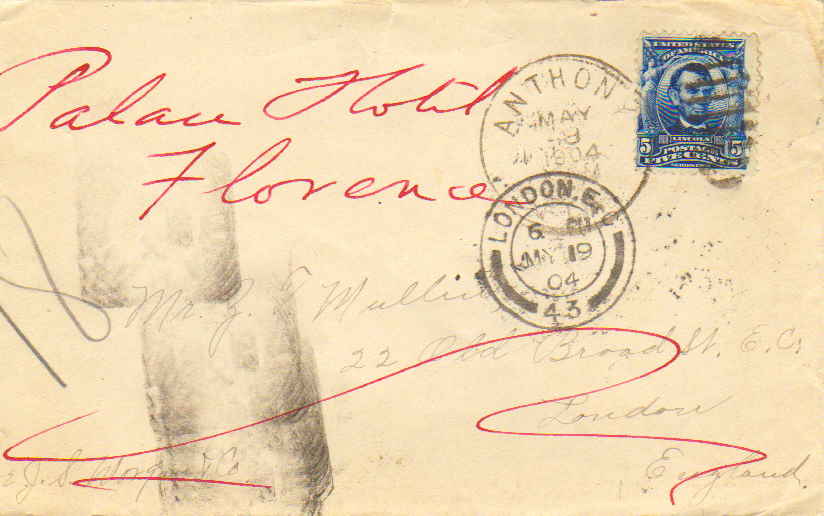 Palace Hotel
Florence
ANTHON
MAY
1904
UNITED STATES
OF AMERICA
LINCOLN
5 POSTAGE 5
FIVE CENTS
LONDON. E.C
6 PM
MY 19
04
43
Mr. J. Mullin
22 Old Broad St. E.C.
London
England.
J. S. Morgan & Co.